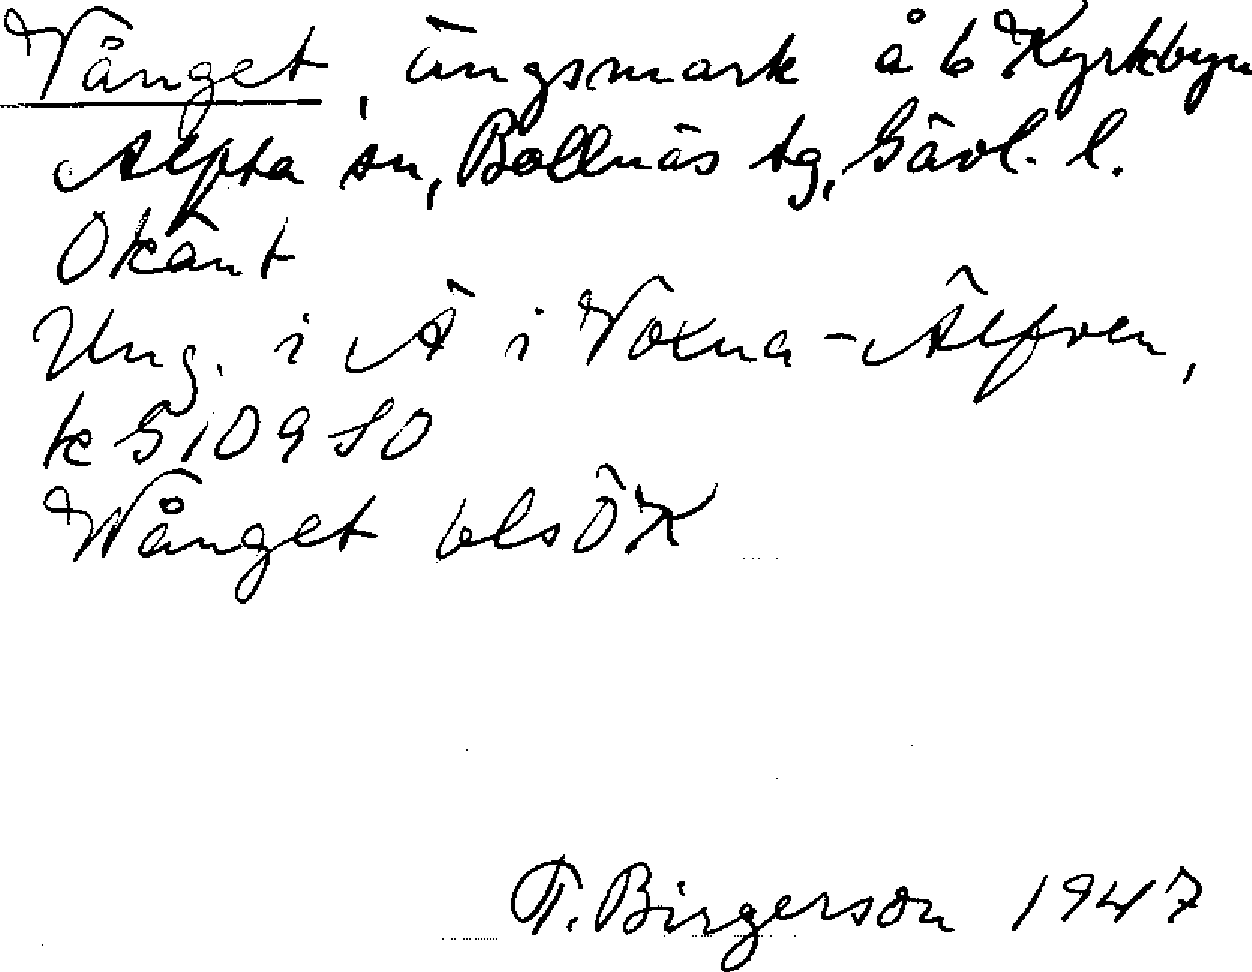 Vånget, ängsmark å b Kyrkbyn
Alfta sn, Bollnäs tg, Gävl. l.
Okänt
Ung. i Ä i Voxna-Älfven,
k 510980
Wånget bls ÖK
T. Birgerson 1947